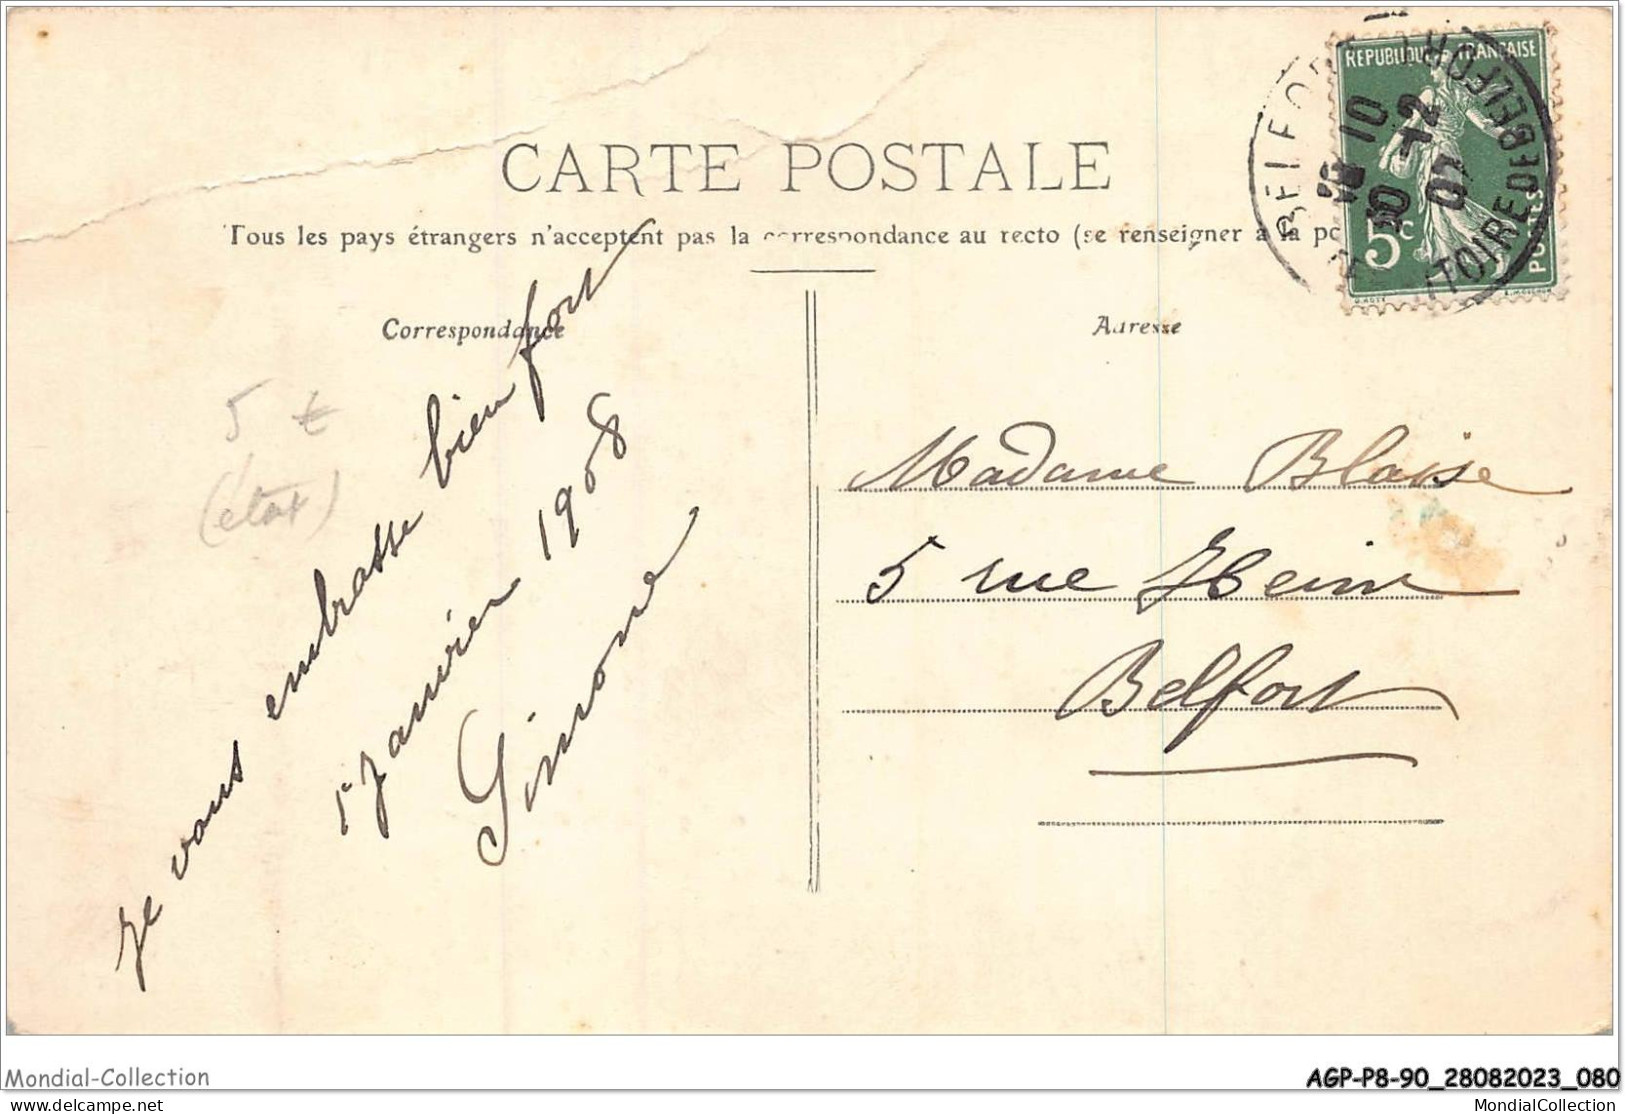 CARTE POSTALE
Tous les pays étrangers n'acceptent pas la correspondance au recto (se renseigner à la po
Correspondance
Adresse
RÉPUBLIQUE FRANÇAISE
5c
POSTES
BELFORT
TOIRE DE BELFORT
10
30 -12
07
5 €
(état)
Je vous embrasse bien fort
1r Janvier 1908
Simone
Madame Blaise
5 rue Heim
Belfort
Mondial-Collection
AGP-P8-90_28082023_080
mondial-collection
MondialCollection